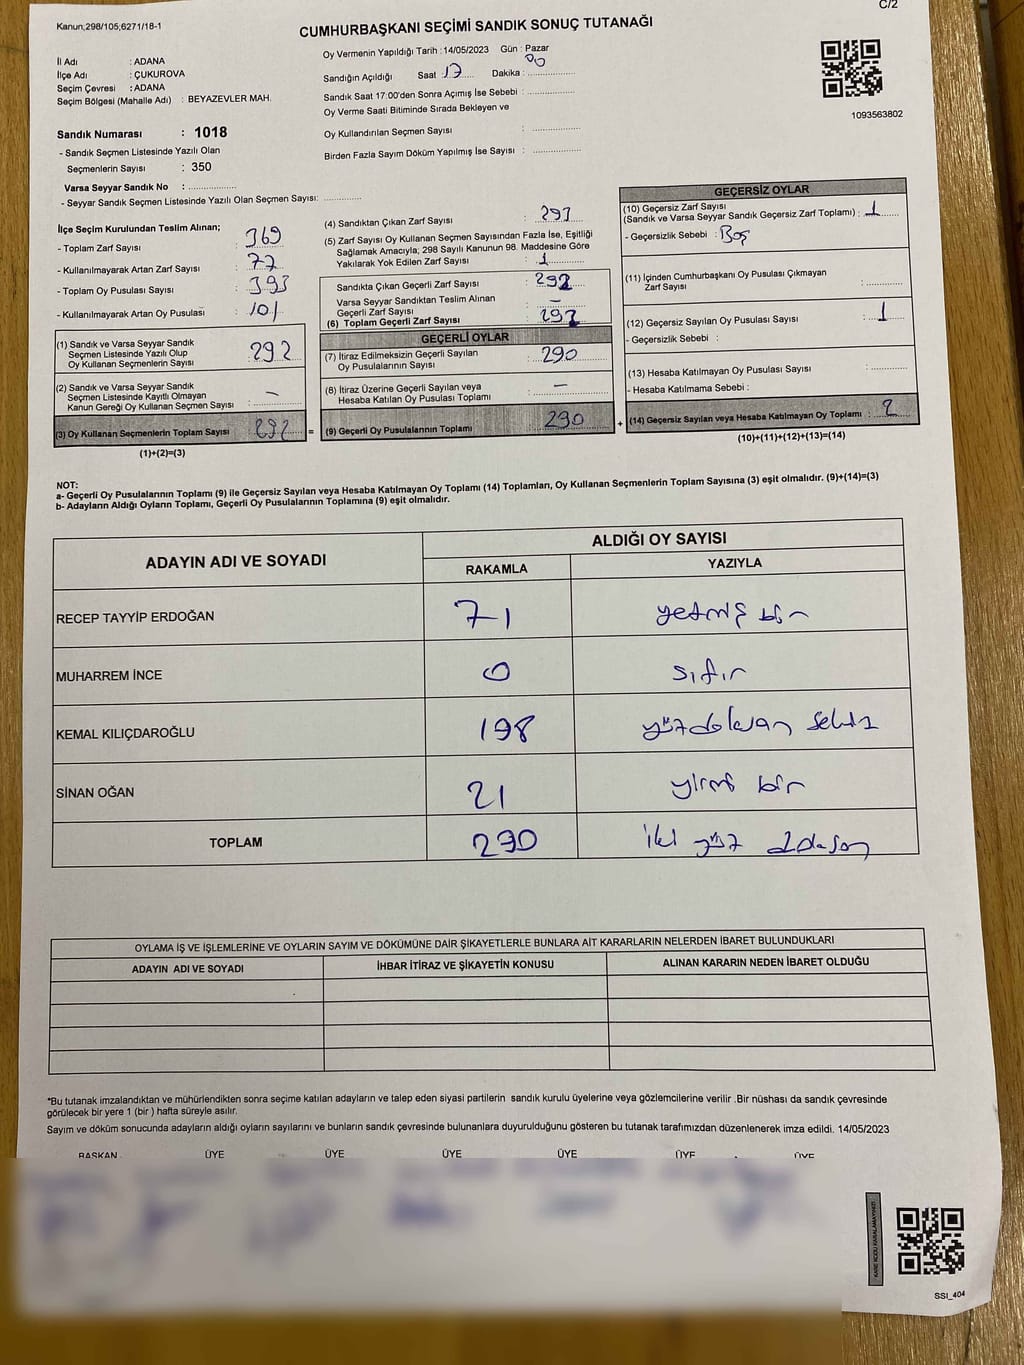 Kanun;298/105;6271/18-1
C/2
CUMHURBAŞKANI SEÇİMİ SANDIK SONUÇ TUTANAĞI
İl Adı : ADANA
İlçe Adı : ÇUKUROVA
Seçim Çevresi : ADANA
Seçim Bölgesi (Mahalle Adı) : BEYAZEVLER MAH.
Sandık Numarası : 1018
- Sandık Seçmen Listesinde Yazılı Olan
Seçmenlerin Sayısı : 350
Varsa Seyyar Sandık No : ..................
- Seyyar Sandık Seçmen Listesinde Yazılı Olan Seçmen Sayısı: ..............
Oy Vermenin Yapıldığı Tarih : 14/05/2023 Gün : Pazar
Sandığın Açıldığı Saat 17 Dakika : 00
Sandık Saat 17:00'den Sonra Açımış İse Sebebi : ..................
Oy Verme Saati Bitiminde Sırada Bekleyen ve
Oy Kullandırılan Seçmen Sayısı : ..................
Birden Fazla Sayım Döküm Yapılmış İse Sayısı : ..................
1093563802
İlçe Seçim Kurulundan Teslim Alınan;
- Toplam Zarf Sayısı : 369
- Kullanılmayarak Artan Zarf Sayısı : 77
- Toplam Oy Pusulası Sayısı : 393
- Kullanılmayarak Artan Oy Pusulası : 101
(1) Sandık ve Varsa Seyyar Sandık
Seçmen Listesinde Yazılı Olup
Oy Kullanan Seçmenlerin Sayısı : 292
(2) Sandık ve Varsa Seyyar Sandık
Seçmen Listesinde Kayıtlı Olmayan
Kanun Gereği Oy Kullanan Seçmen Sayısı : –
(3) Oy Kullanan Seçmenlerin Toplam Sayısı : 292 =
(1)+(2)=(3)
(4) Sandıktan Çıkan Zarf Sayısı : 293
(5) Zarf Sayısı Oy Kullanan Seçmen Sayısından Fazla İse, Eşitliği
Sağlamak Amacıyla; 298 Sayılı Kanunun 98. Maddesine Göre
Yakılarak Yok Edilen Zarf Sayısı : 1
Sandıkta Çıkan Geçerli Zarf Sayısı : 292
Varsa Seyyar Sandıktan Teslim Alınan
Geçerli Zarf Sayısı : –
(6) Toplam Geçerli Zarf Sayısı : 292
GEÇERLİ OYLAR
(7) İtiraz Edilmeksizin Geçerli Sayılan
Oy Pusulasının Sayısı : 290
(8) İtiraz Üzerine Geçerli Sayılan veya
Hesaba Katılan Oy Pusulası Toplamı : –
(9) Geçerli Oy Pusulalarının Toplamı : 290 +
GEÇERSİZ OYLAR
(10) Geçersiz Zarf Sayısı
(Sandık ve Varsa Seyyar Sandık Geçersiz Zarf Toplamı) : 1
- Geçersizlik Sebebi : Boş
(11) İçinden Cumhurbaşkanı Oy Pusulası Çıkmayan
Zarf Sayısı : ............
(12) Geçersiz Sayılan Oy Pusulası Sayısı : 1
- Geçersizlik Sebebi :
(13) Hesaba Katılmayan Oy Pusulası Sayısı : ............
- Hesaba Katılmama Sebebi :
(14) Geçersiz Sayılan veya Hesaba Katılmayan Oy Toplamı : 2
(10)+(11)+(12)+(13)=(14)
NOT:
a- Geçerli Oy Pusulalarının Toplamı (9) ile Geçersiz Sayılan veya Hesaba Katılmayan Oy Toplamı (14) Toplamları, Oy Kullanan Seçmenlerin Toplam Sayısına (3) eşit olmalıdır. (9)+(14)=(3)
b- Adayların Aldığı Oyların Toplamı, Geçerli Oy Pusulalarının Toplamına (9) eşit olmalıdır.
ADAYIN ADI VE SOYADI
ALDIĞI OY SAYISI
RAKAMLA YAZIYLA
RECEP TAYYİP ERDOĞAN 71 yetmiş bir
MUHARREM İNCE 0 sıfır
KEMAL KILIÇDAROĞLU 198 yüzdoksan sekiz
SİNAN OĞAN 21 yirmi bir
TOPLAM 290 iki yüz doksan
OYLAMA İŞ VE İŞLEMLERİNE VE OYLARIN SAYIM VE DÖKÜMÜNE DAİR ŞİKAYETLERLE BUNLARA AİT KARARLARIN NELERDEN İBARET BULUNDUKLARI
ADAYIN ADI VE SOYADI İHBAR İTİRAZ VE ŞİKAYETİN KONUSU ALINAN KARARIN NEDEN İBARET OLDUĞU
*Bu tutanak imzalandıktan ve mühürlendikten sonra seçime katılan adayların ve talep eden siyasi partilerin sandık kurulu üyelerine veya gözlemcilerine verilir .Bir nüshası da sandık çevresinde
görülecek bir yere 1 (bir ) hafta süreyle asılır.
Sayım ve döküm sonucunda adayların aldığı oyların sayılarını ve bunların sandık çevresinde bulunanlara duyurulduğunu gösteren bu tutanak tarafımızdan düzenlenerek imza edildi. 14/05/2023
BAŞKAN ÜYE ÜYE ÜYE ÜYE ÜYE ÜYE
KARE KODU KARALAMAYINIZ!
SSI_404